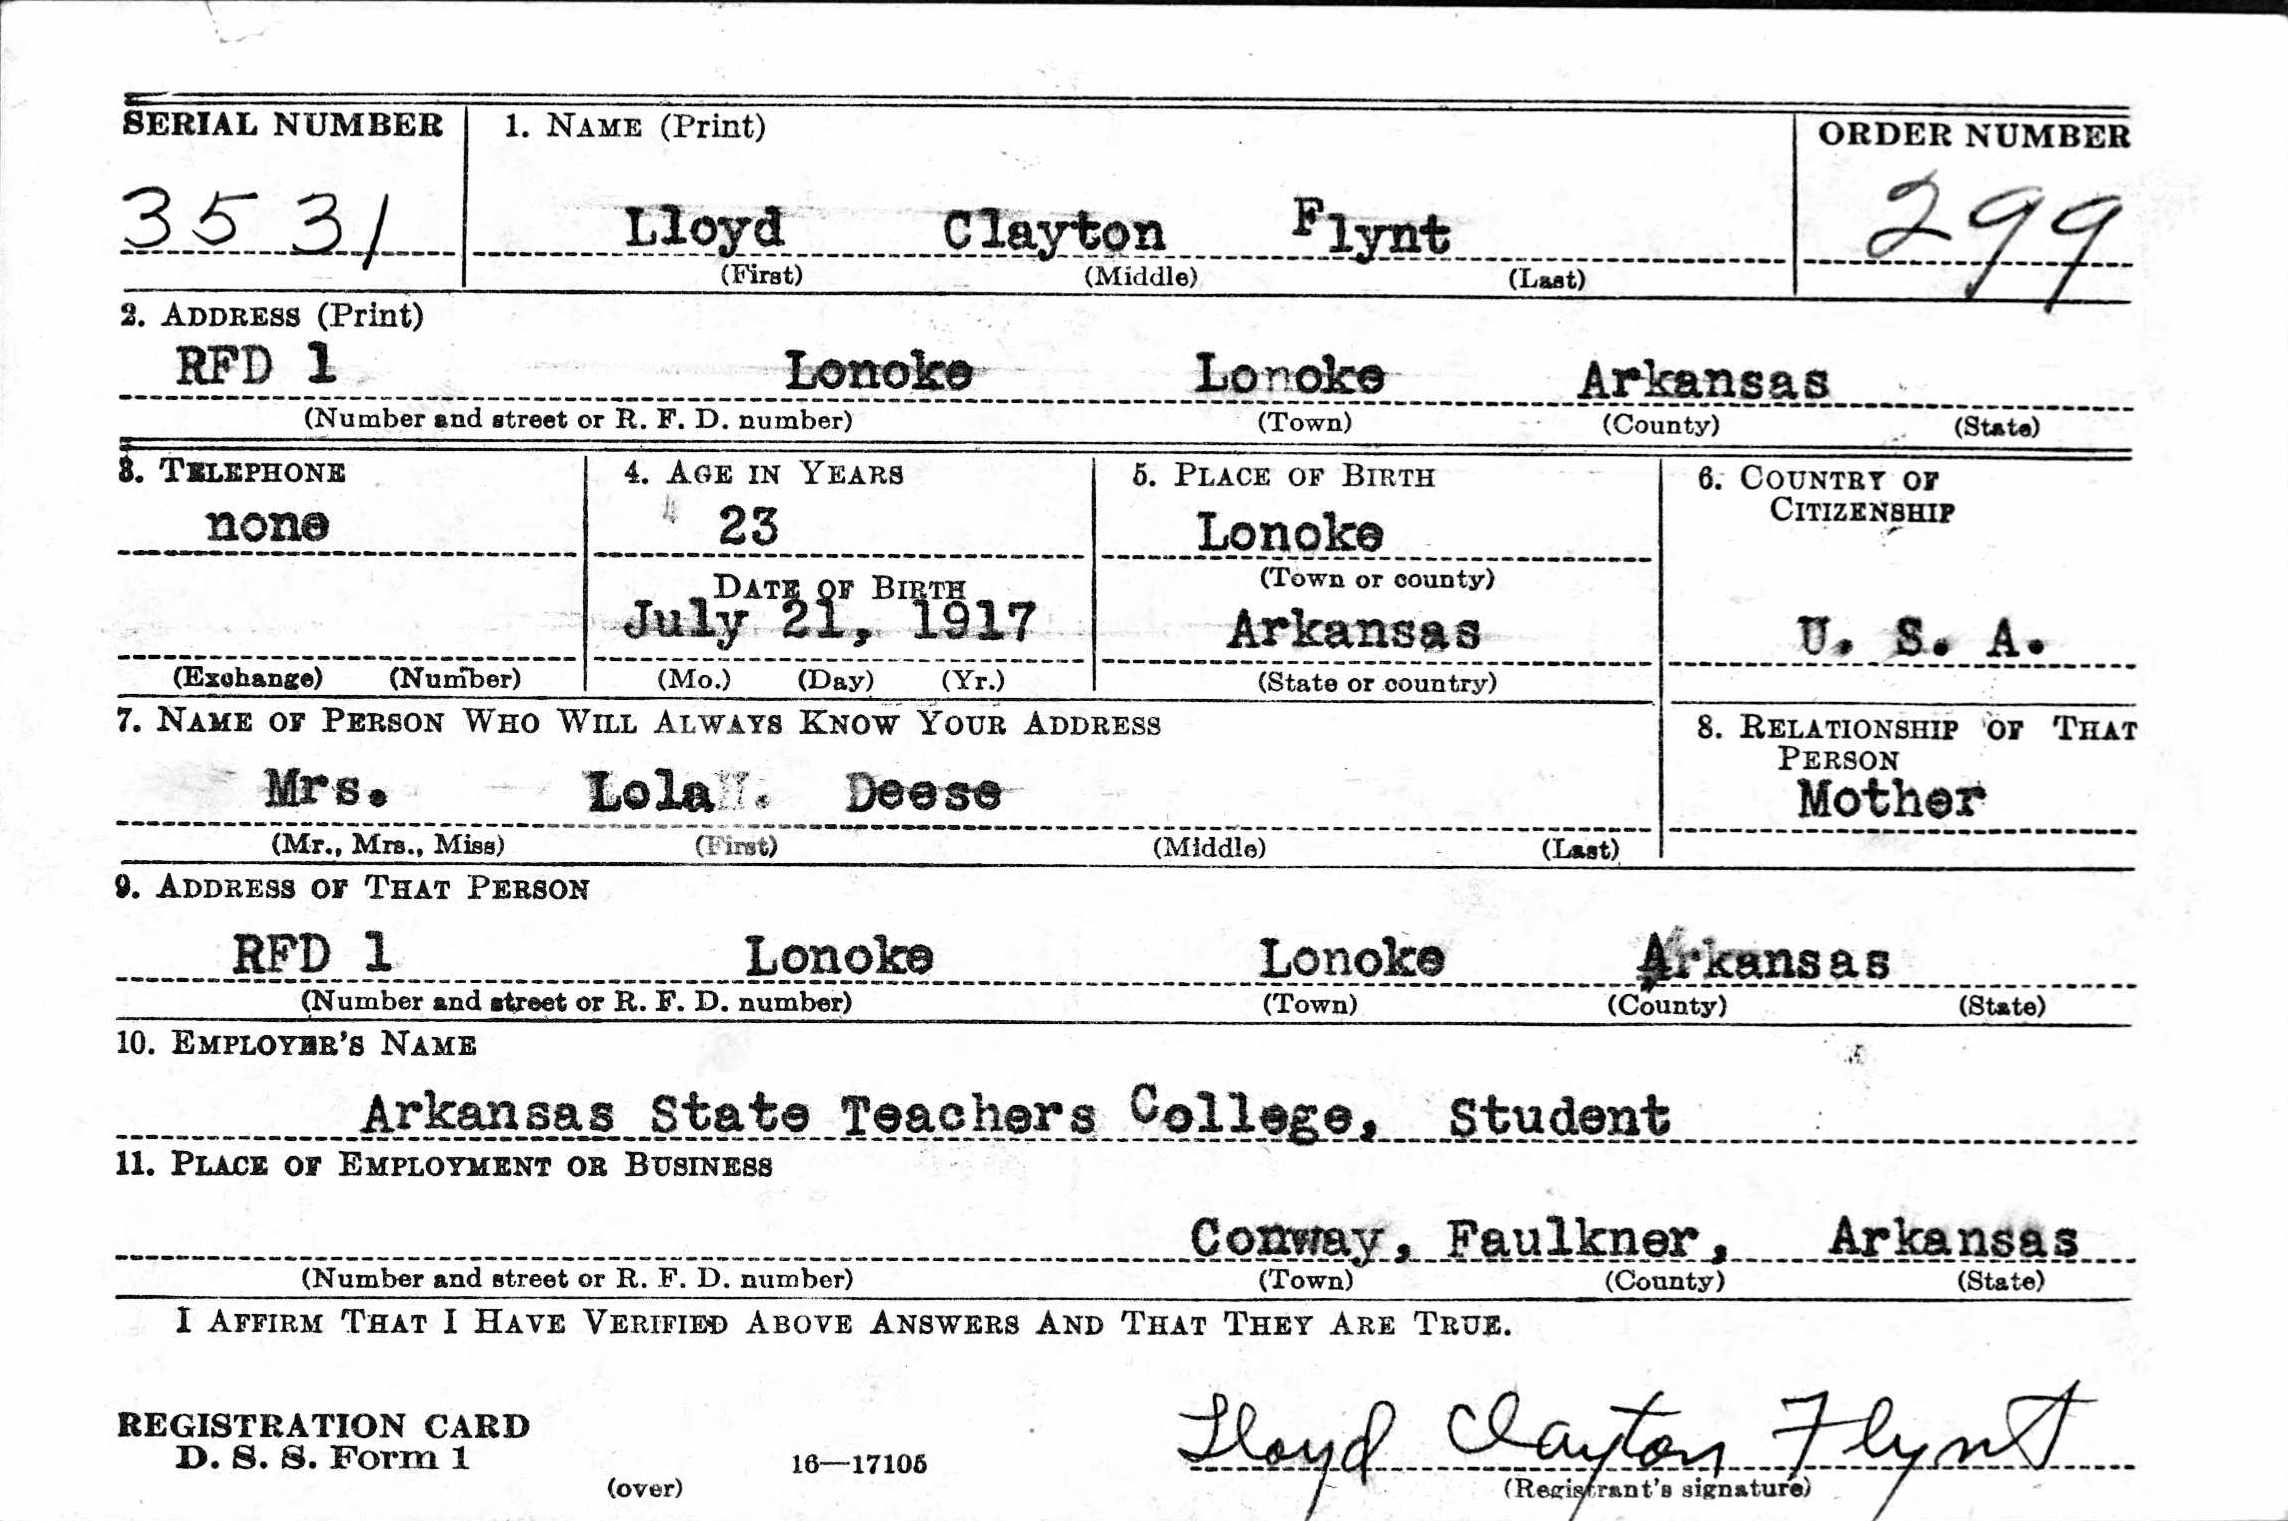 SERIAL NUMBER 1. NAME (Print) ORDER NUMBER
3531 Lloyd Clayton Flynt 299
(First) (Middle) (Last)
2. ADDRESS (Print)
RFD 1 Lonoke Lonoke Arkansas
(Number and street or R. F. D. number) (Town) (County) (State)
3. TELEPHONE 4. AGE IN YEARS 5. PLACE OF BIRTH 6. COUNTRY OF
CITIZENSHIP
none 23 Lonoke
DATE OF BIRTH (Town or county)
July 21, 1917 Arkansas U. S. A.
(Exchange) (Number) (Mo.) (Day) (Yr.) (State or country)
7. NAME OF PERSON WHO WILL ALWAYS KNOW YOUR ADDRESS 8. RELATIONSHIP OF THAT
PERSON
Mrs. Lola Deese Mother
(Mr., Mrs., Miss) (First) (Middle) (Last)
9. ADDRESS OF THAT PERSON
RFD 1 Lonoke Lonoke Arkansas
(Number and street or R. F. D. number) (Town) (County) (State)
10. EMPLOYER'S NAME
Arkansas State Teachers College, Student
11. PLACE OF EMPLOYMENT OR BUSINESS
Conway, Faulkner, Arkansas
(Number and street or R. F. D. number) (Town) (County) (State)
I AFFIRM THAT I HAVE VERIFIED ABOVE ANSWERS AND THAT THEY ARE TRUE.
Lloyd Clayton Flynt
REGISTRATION CARD
D. S. S. Form 1 16—17105
(over) (Registrant's signature)